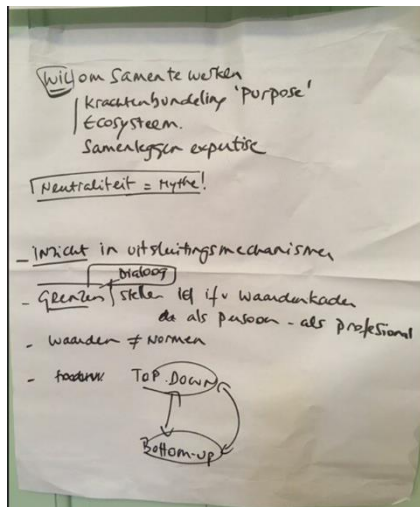 Wil om samen te werken
krachtenbundeling 'purpose'
Ecosysteem.
Samenleggen expertise
Neutraliteit = Mythe!
- inzicht in uitsluitingsmechanismen
Dialoog
- Grenzen stellen ifv waardenkader
als persoon - als profesional
- waarden ≠ normen
-
TOP.DOWN
Bottom-up